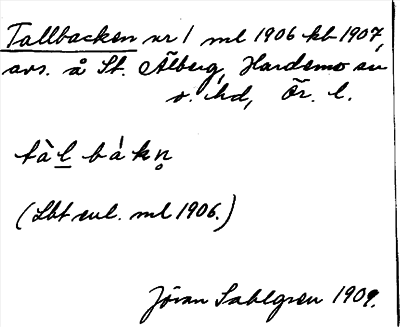 Tallbacken nr 1 ml 1906 kb 1907,
avs. å St. Älberg, Hardemo sn
v. hd, Ör. l.
tàl bákn̥
(Lbt enl. ml 1906.)
Jöran Sahlgren 1909.